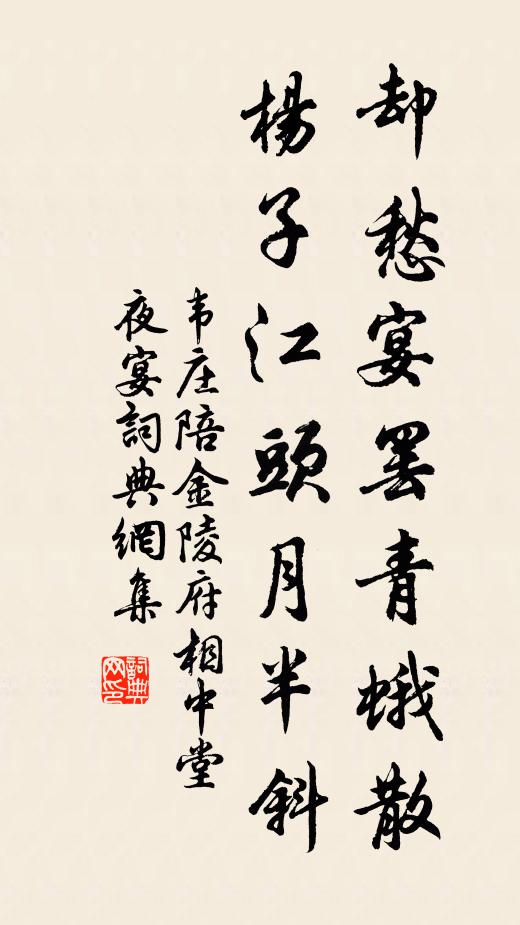 却愁宴罢青蛾散
楊子江頭月半斜
韦庄陪金陵府相中堂
夜宴詞典網集
詞典网印